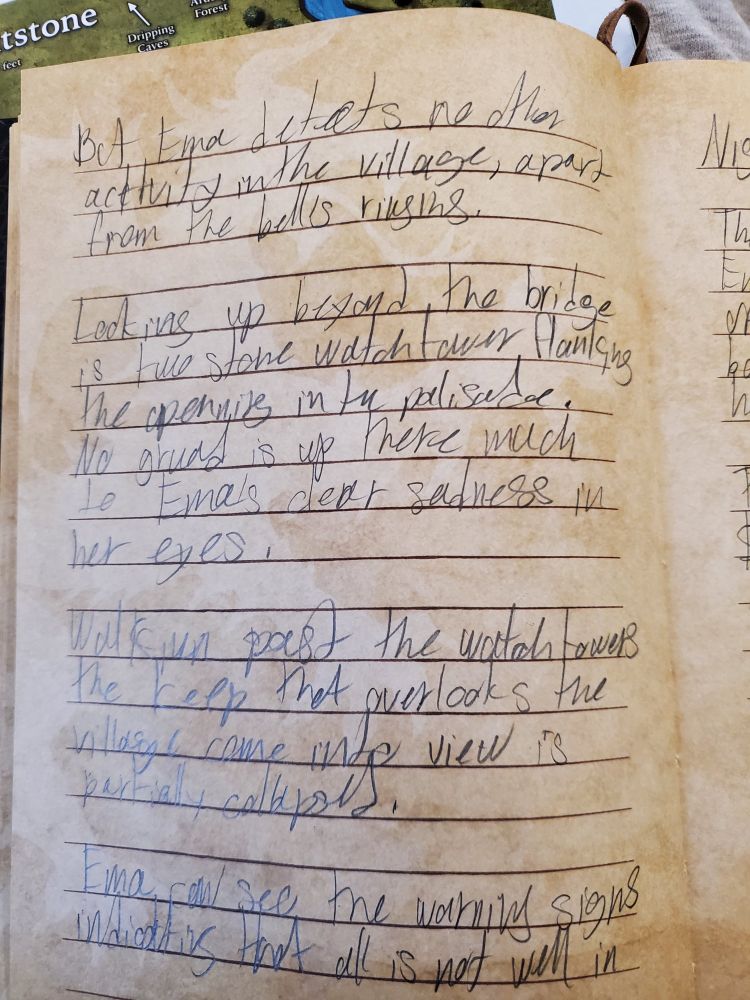 tstone
feet
Dripping
Caves
Forest
But Ema detects no other
activity in the village, apart
from the bells ringing.
Looking up beyond the bridge
is two stone watchtower flanking
the openning in the palisade.
No gruad is up there much
to Ema's clear sadness in
her eyes.
Walk un past the watchtowers
the keep that overlooks the
village come into view is
partially collapsed.
Ema can see the warning signs
indicating that all is not well in
Nig
Th